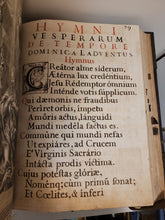 HYMNI
VESPERARUM
DE TEMPORE
DOMINICA I. ADVENTUS
Hymnus
CReátor alme siderum,
Ætérna lux credéntium,
Jesu Redémptor ómnium
Inténde votis súpplicum.
Qui dæmonis ne fraudibus
Períret orbis, ímpetu
Amóris actus, lánguidi
Mundi medéla factus es.
Commúne qui mundi nefas
Ut expiáres, ad Crucem
E Vírginis Sacrário
Intácta prodis víctima.
Cujus potéstas glóriæ,
Noménq; cum primū sonat;
Et Cœlites, & ínferi